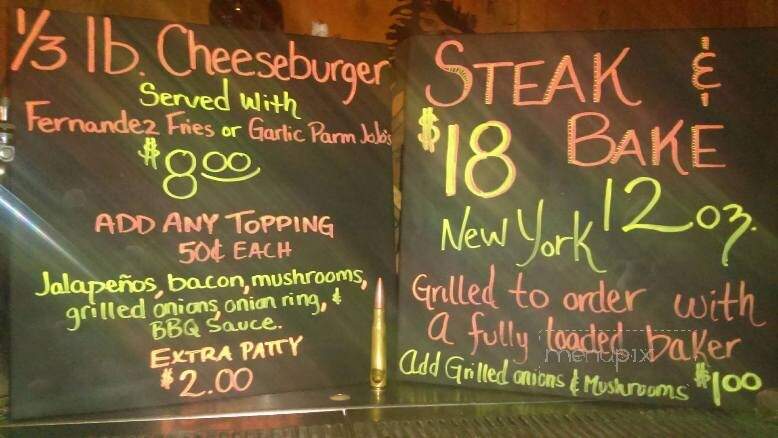 1/3 lb. Cheeseburger
Served With
Fernandez Fries or Garlic Parm JoJo's
$8.00
ADD ANY TOPPING
50¢ EACH
Jalapeños, bacon, mushrooms,
grilled onions, onion ring, &
BBQ Sauce.
EXTRA PATTY
$2.00
STEAK &
$18 BAKE
New York 12oz.
Grilled to order with
a fully loaded baker
Add Grilled onions & Mushrooms $1.00
menupix